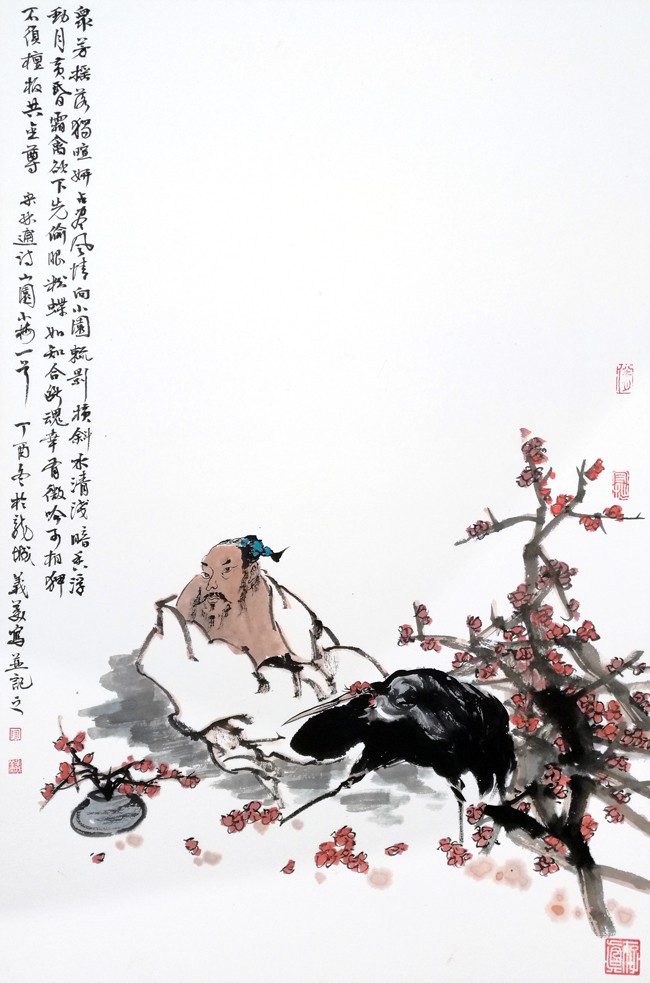 衆芳摇落獨暄妍占尽風情向小園疏影横斜水清淺暗香浮
動月黄昏霜禽欲下先偷眼粉蝶如知合断魂幸有微吟可相狎
不須檀板共金尊 宋林逋詩山園小梅一首 丁酉冬於龍城義美寫並記之